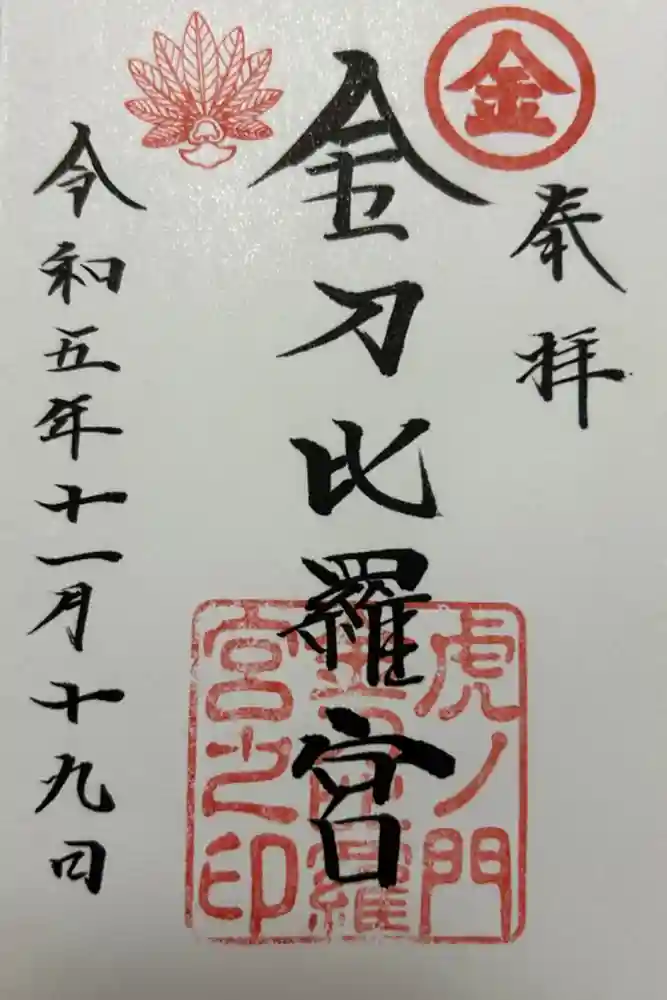 金
奉拝
金刀比羅宮
虎ノ門
金刀比羅
宮之印
令和五年十一月十九日